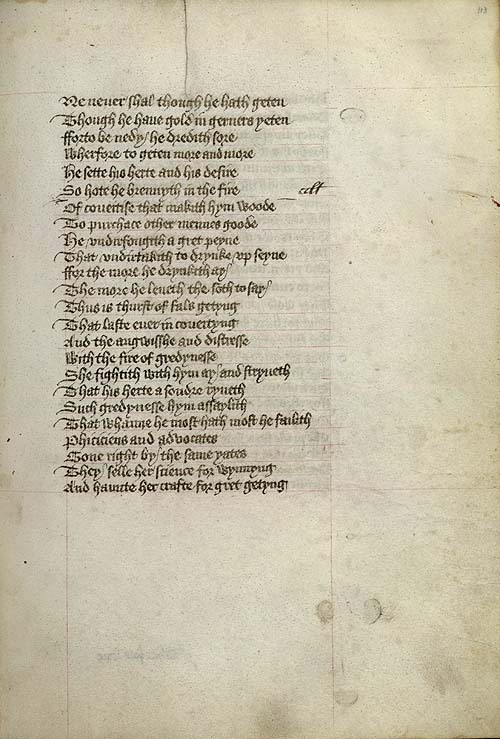 Ne never shal though he hath geten
Though he have gold in gerners yeten
fforto be nedy / he dredith sore
Wherfore to geten more and more
He sette his herte and his desire
So hote he brennyth in the fire
Of coveitise that makith hym woode
To purchace other mennes goode
He undirfongith a gret peyne
That undirtakith to drynke up seyne
ffor the more he drynkith ay
The more he leveth the soth to say
Thus is thurst of fals getyng
That laste ever in coveityng
And the angwisshe and distresse
With the fire of gredynesse
She fightith with hym ay / and stryveth
That his herte a sondre ryveth
Such gredynesse hym assaylith
That whanne he most hath most he failith
Phiciciens and advocates
Gone right by / the same yates
They / selle her science for wynnyng
And haunte her crafte for gret getyng